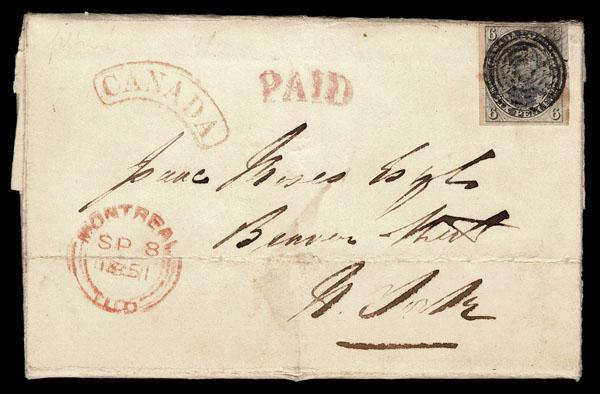 CANADA
PAID
6 6
CANADA
SIX PENCE
6 6
Isaac Moses Esq
Beaver Street
N. York
MONTREAL
SP 8
1851
L.C.